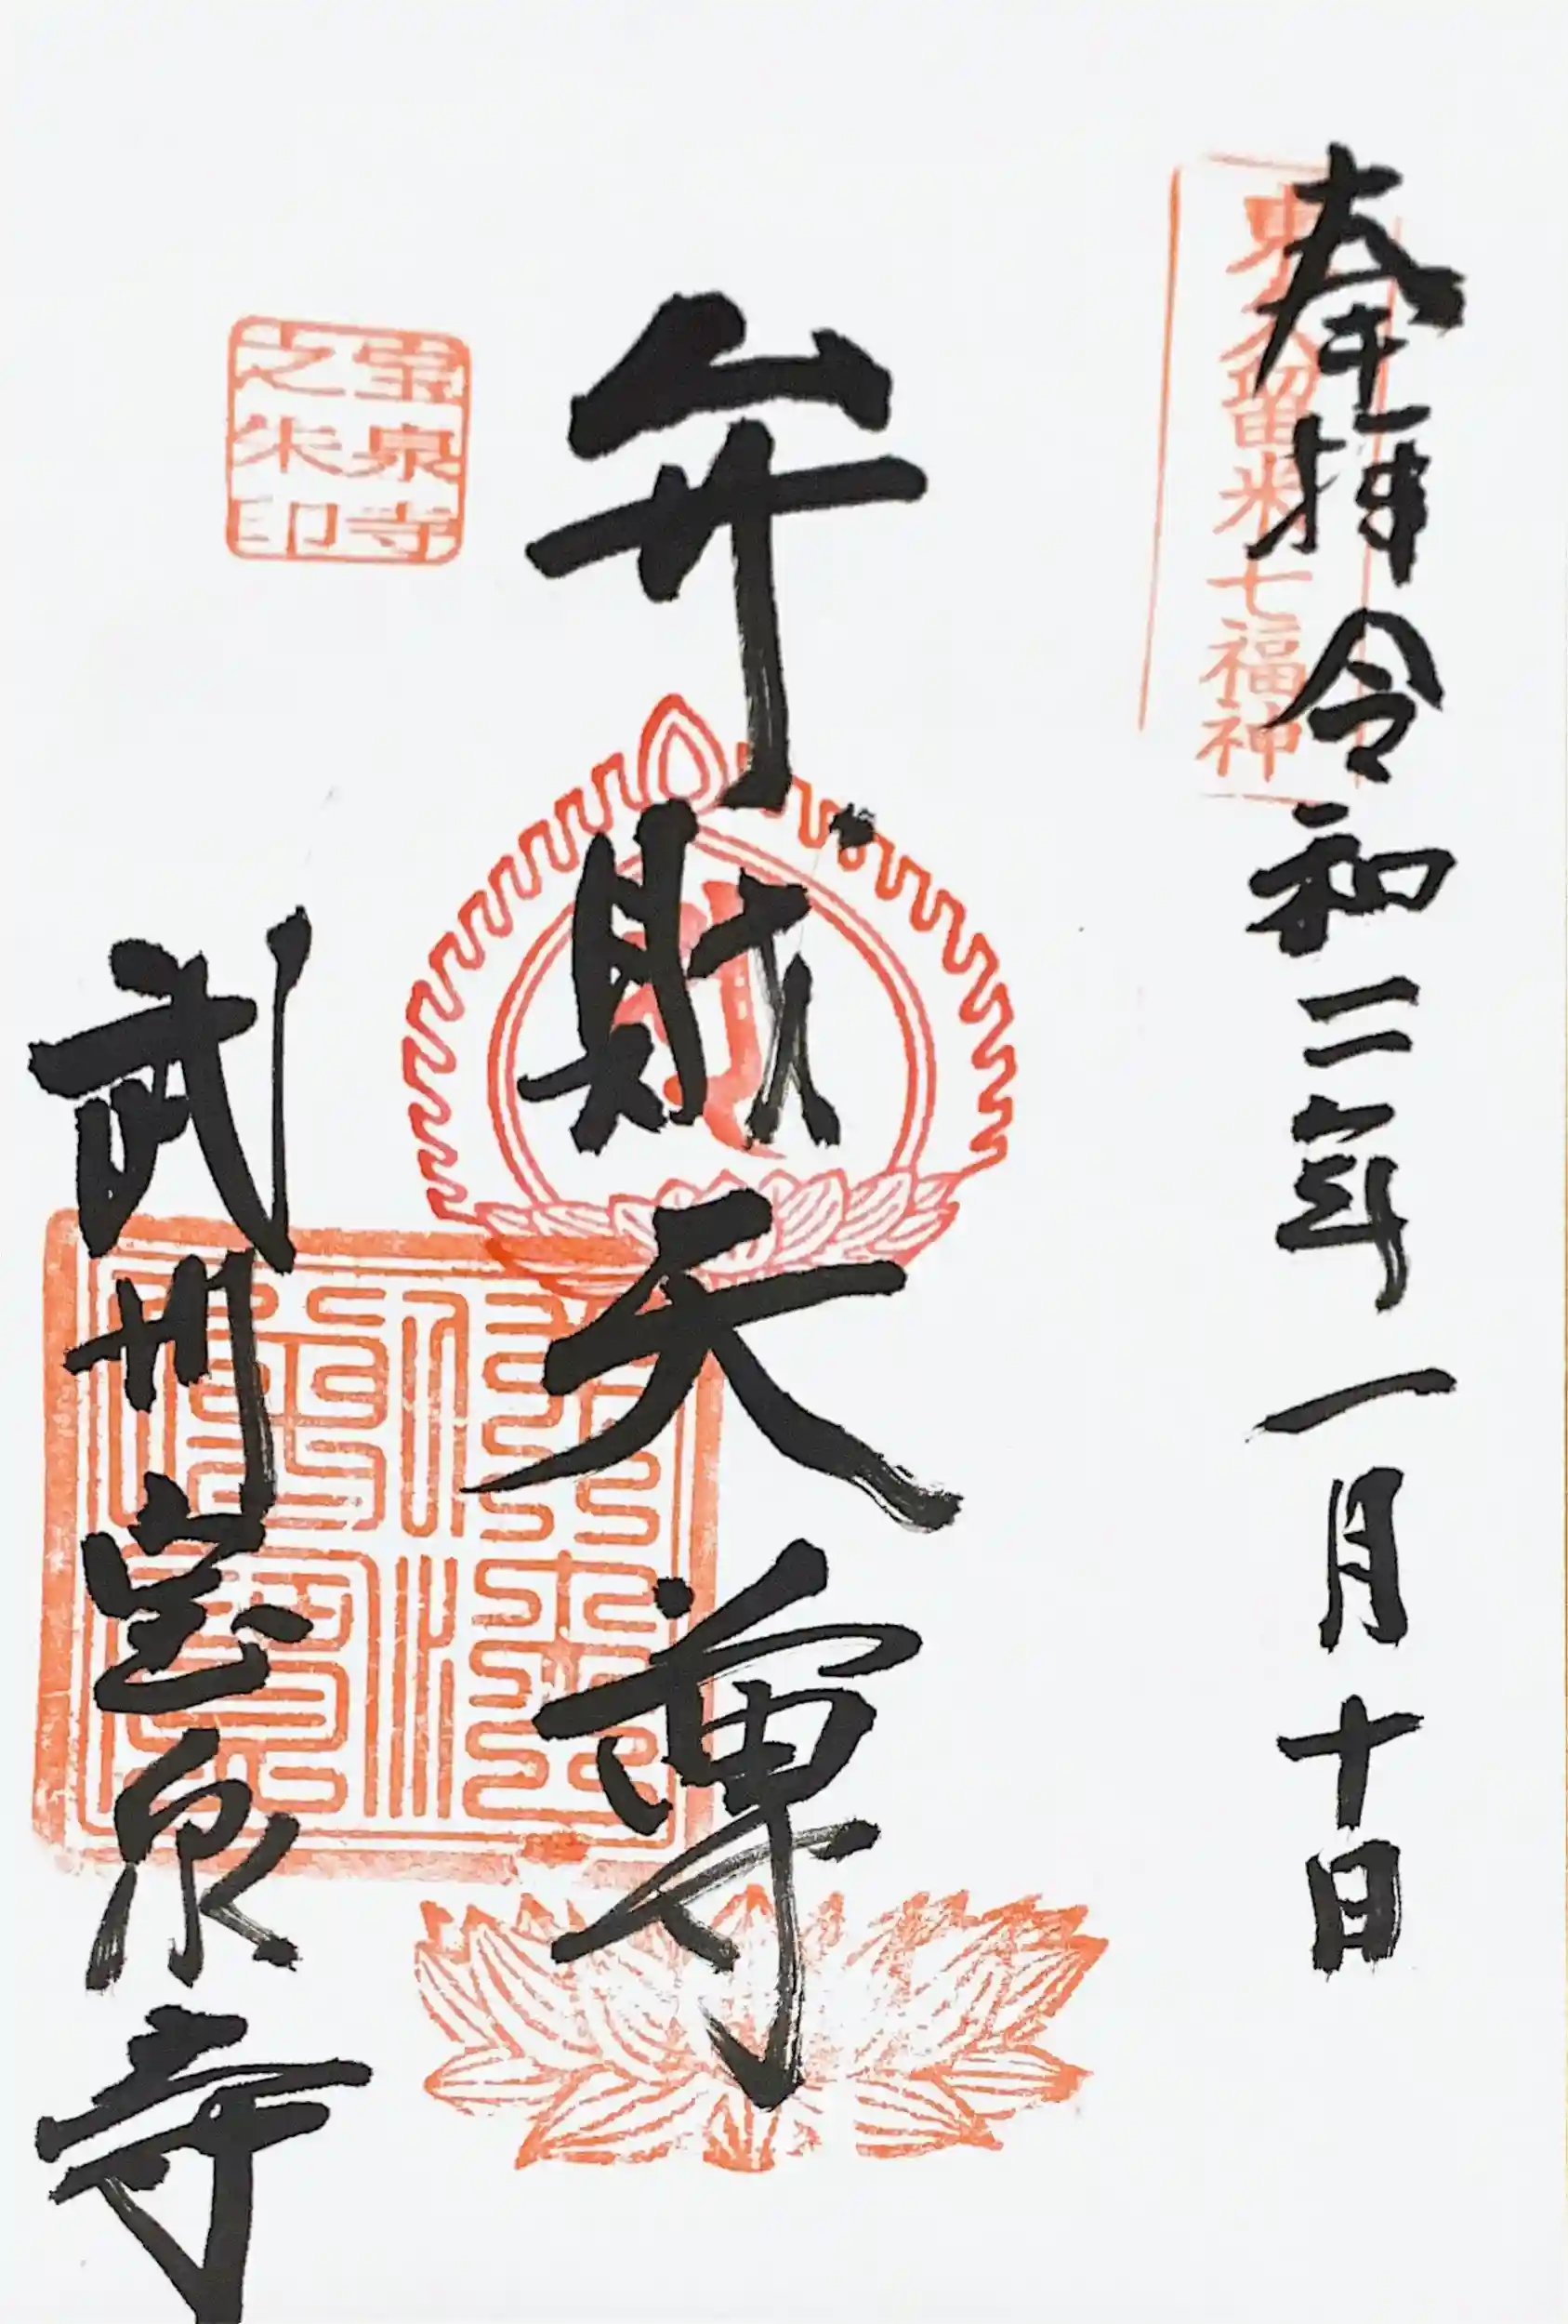 奉拝 令和二年 一月十日
東久留米七福神
弁財天尊
宝泉寺
之朱印
武州宝泉寺